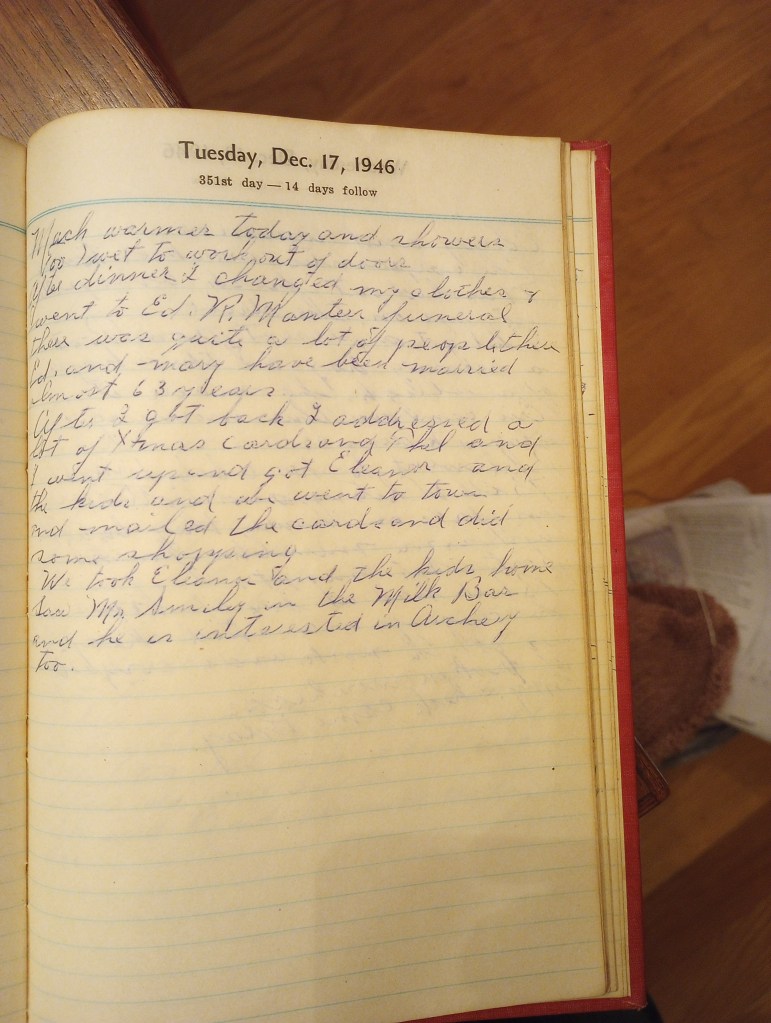 Tuesday, Dec. 17, 1946
351st day — 14 days follow
Much warmer today and showers
too wet to work out of doors
After dinner I changed my clothes &
went to Ed. R. Manter funeral
there was quite a lot of people there
Ed. and Mary have been married
almost 63 years
After I got back I addressed a
lot of Xmas cards and Phel and
I went up and got Eleanor and
the kids and we went to town
and mailed the cards and did
some shopping
We took Eleanor and the kids home
Saw Mr. in the Milk Bar
and he is intrested in Archery
too.